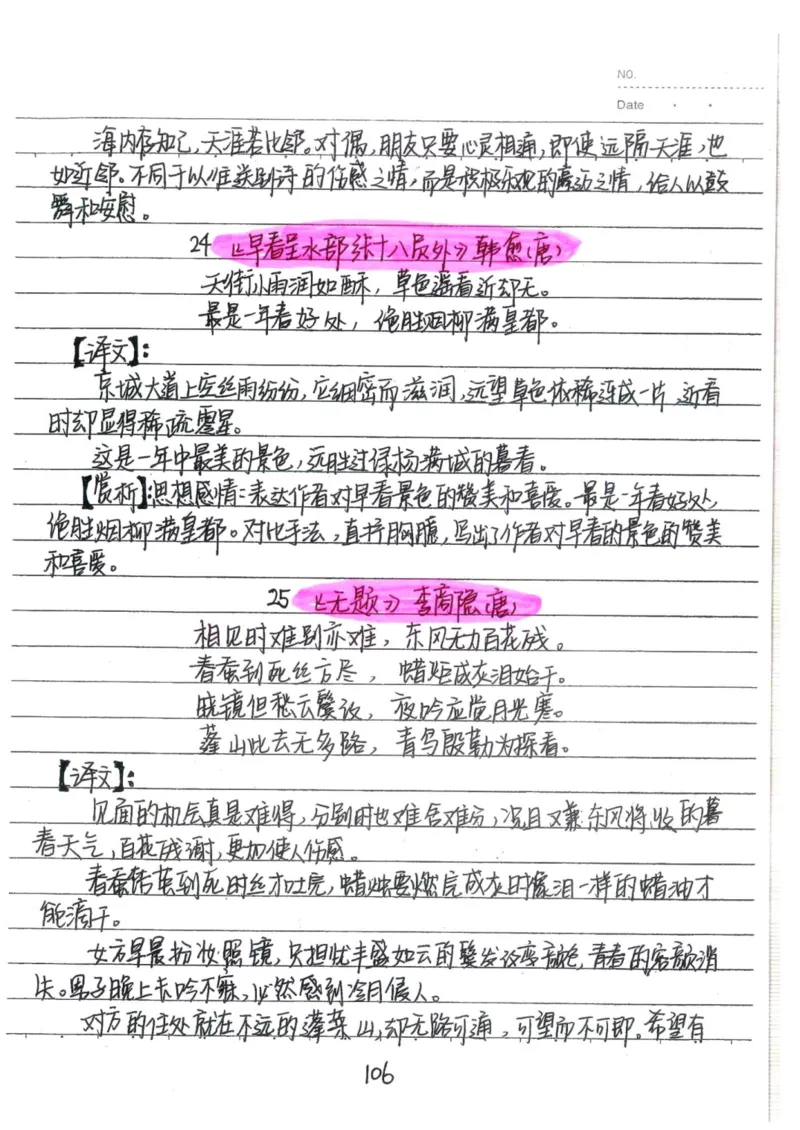 NO.
Date
海内存知己，天涯若比邻。对偶，朋友只要心灵相通，即使远隔天涯，也
如近邻。不同于以往送别诗的伤感之情，而是积极乐观的豪迈之情，给人以鼓
舞和安慰。
24 《早春呈水部张十八员外》韩愈（唐）
天街小雨润如酥，草色遥看近却无。
最是一年春好处，绝胜烟柳满皇都。
【译文】：
京城大道上空丝雨纷纷，它细密而滋润，远望草色依稀连成一片，近看
时却显得稀疏零星。
这是一年中最美的景色，远胜过绿杨满城的暮春。
【赏析】：思想感情：表达作者对早春景色的赞美和喜爱。最是一年春好处，
绝胜烟柳满皇都。对比手法，直抒胸臆，写出了作者对早春的景色的赞美
和喜爱。
25 《无题》李商隐（唐）
相见时难别亦难，东风无力百花残。
春蚕到死丝方尽，蜡炬成灰泪始干。
晓镜但愁云鬓改，夜吟应觉月光寒。
蓬山此去无多路，青鸟殷勤为探看。
【译文】：
见面的机会真是难得，分别时也难舍难分，况且又兼东风将收的暮
春天气，百花残谢，更加使人伤感。
春蚕结茧到死时丝才吐完，蜡烛要燃完成灰时像泪一样的蜡油才
能滴干。
女方早晨扮妆照镜，只担忧丰盛如云的鬓发改变颜色，青春的容颜消
失。男子晚上长吟不寐，必然感到冷月侵人。
对方的住处就在不远的蓬莱山，却无路可通，可望而不可即。希望有
106